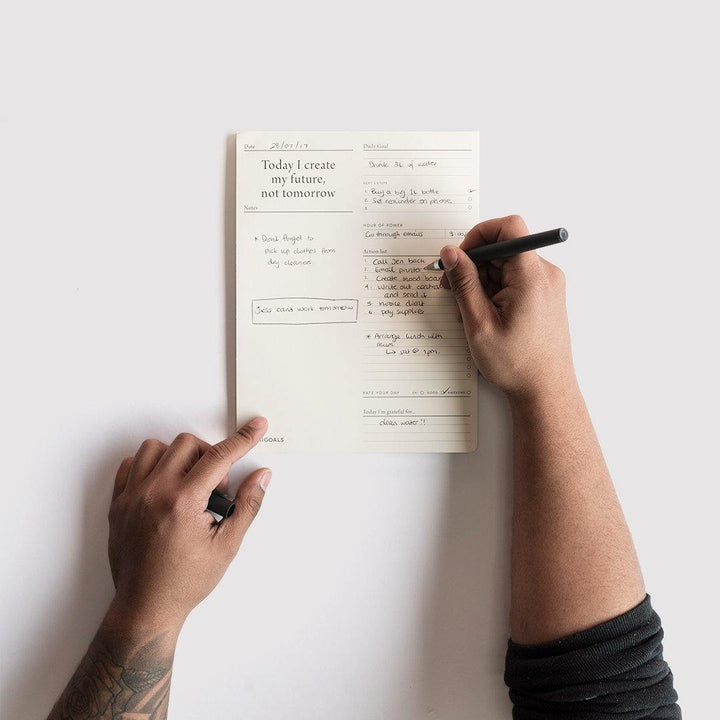 Date 28/07/17
Today I create
my future,
not tomorrow
Notes
* Dont forget to
pick up clothes from
dry cleaners.
Jess cant work tomorrow
GOALS
Daily Goal
Drink 3L of water
NEXT 3 STEPS
1. Buy a big 1L bottle
2. Set reminder on phone
3.
HOUR OF POWER
Go through emails
Action list
1. Call Jen back
2. Email printer
3. Create mood boar
4. Write out
and send it
5. invoice client
6. pay supplies
* Arrange lunch with
mum
↳ sat @ 1pm.
RATE YOUR DAY OK GOOD AWESOME
Today I'm grateful for...
clean water!!